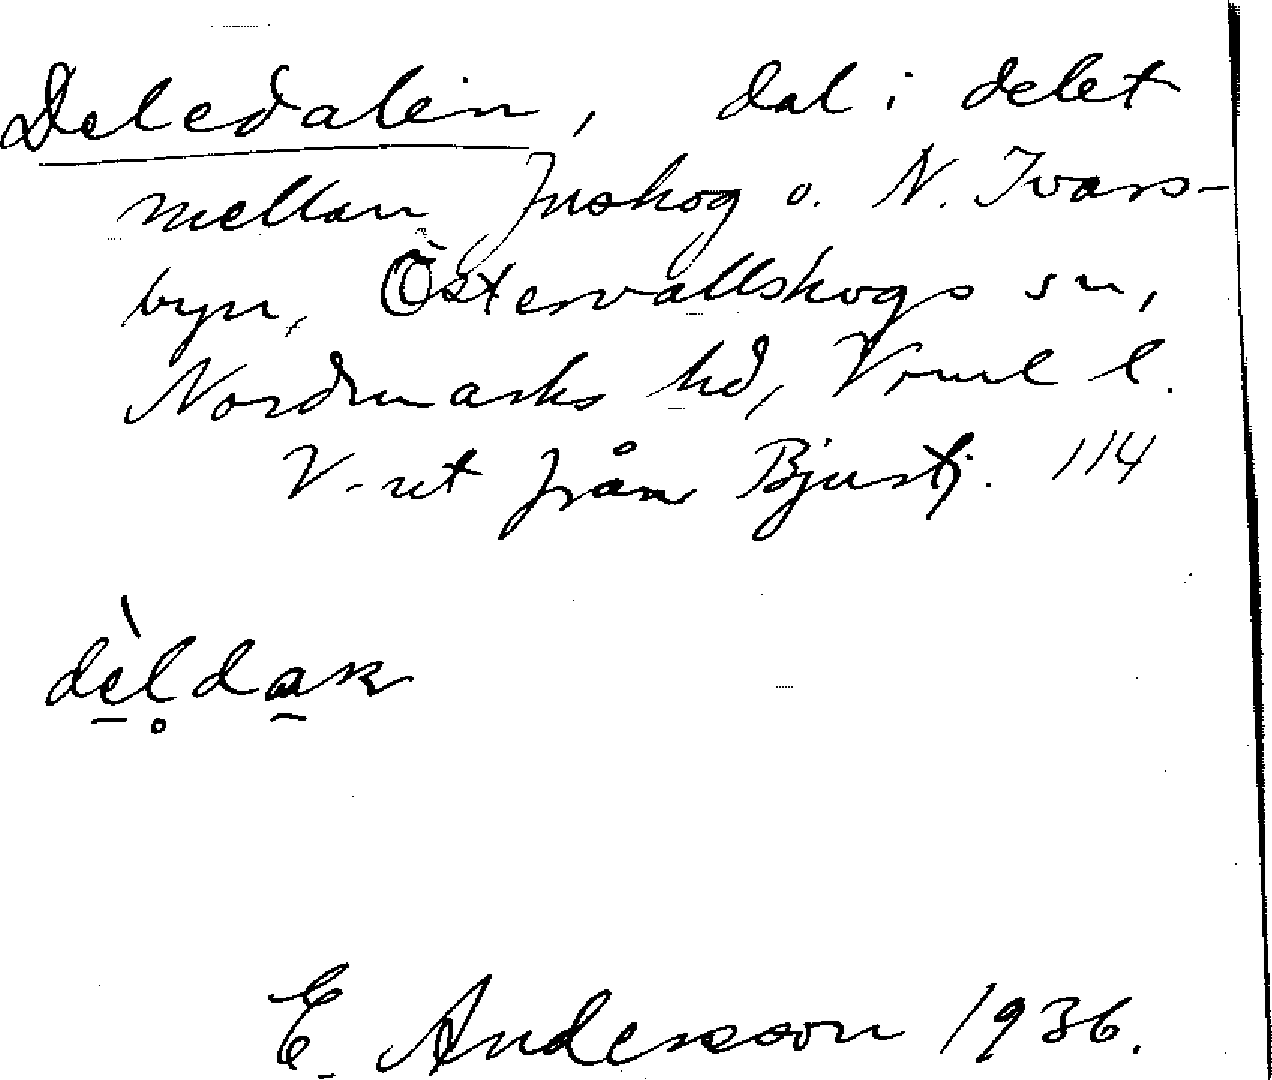 Deledalen, dal i delet
mellan Juskog o. N. Ivars-
byn, Östervallskogs sn,
Nordmarks hd, Vrml l.
V-ut från Bjurtj. 114
dèldan
E. Andersson 1936.